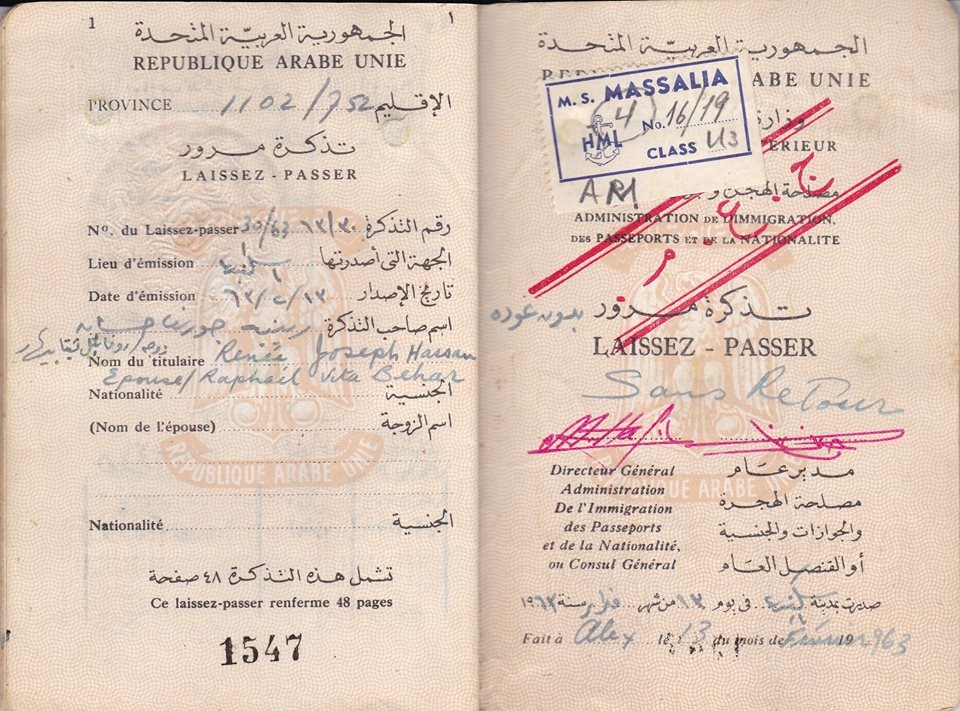 1 1
الجمهورية العربية المتحدة
REPUBLIQUE ARABE UNIE
PROVINCE 1102/752 الإقليم
تذكرة مرور
LAISSEZ - PASSER
Nº. du Laissez-passer 30/63 ٦٣/٣٠ رقم التذكرة
Lieu d'émission الجهة التى أصدرتها
Date d'émission ٦٣/٢/١٣ تاريخ الإصدار
اسم صاحب التذكرة
Nom du titulaire Renée Joseph Hassan
Epouse/Raphaël Vita Behar
Nationalité الجنسية
(Nom de l'épouse) اسم الزوجة
REPUBLIQUE ARABE UNIE
Nationalité الجنسية
تشمل هذه التذكرة ٤٨ صفحة
Ce laissez-passer renferme 48 pages
1547
الجمهورية العربية المتحدة
ABE UNIE
M. S. MASSALIA
4 No. 16/19
HML
CLASS U3
وزارة
ERIEUR
مصلحة الهجرة
ADMINISTRATION DE L'IMMIGRATION,
DES PASSEPORTS ET DE LA NATIONALITE
تذكرة مرور بدون عودة
LAISSEZ - PASSER
Sans Retour
Directeur Général مدير عام
Administration مصلحة الهجرة
De l'Immigration
des Passeports والجوازات والجنسية
et de la Nationalité,
ou Consul Général أو القنصل العام
REPUBLIQUE ARABE UNIE
صدرت بمدينة فى يوم ١٣ من شهر فبراير سنة ١٩٦٣
Fait à Alex le 13 du mois de Février 1963